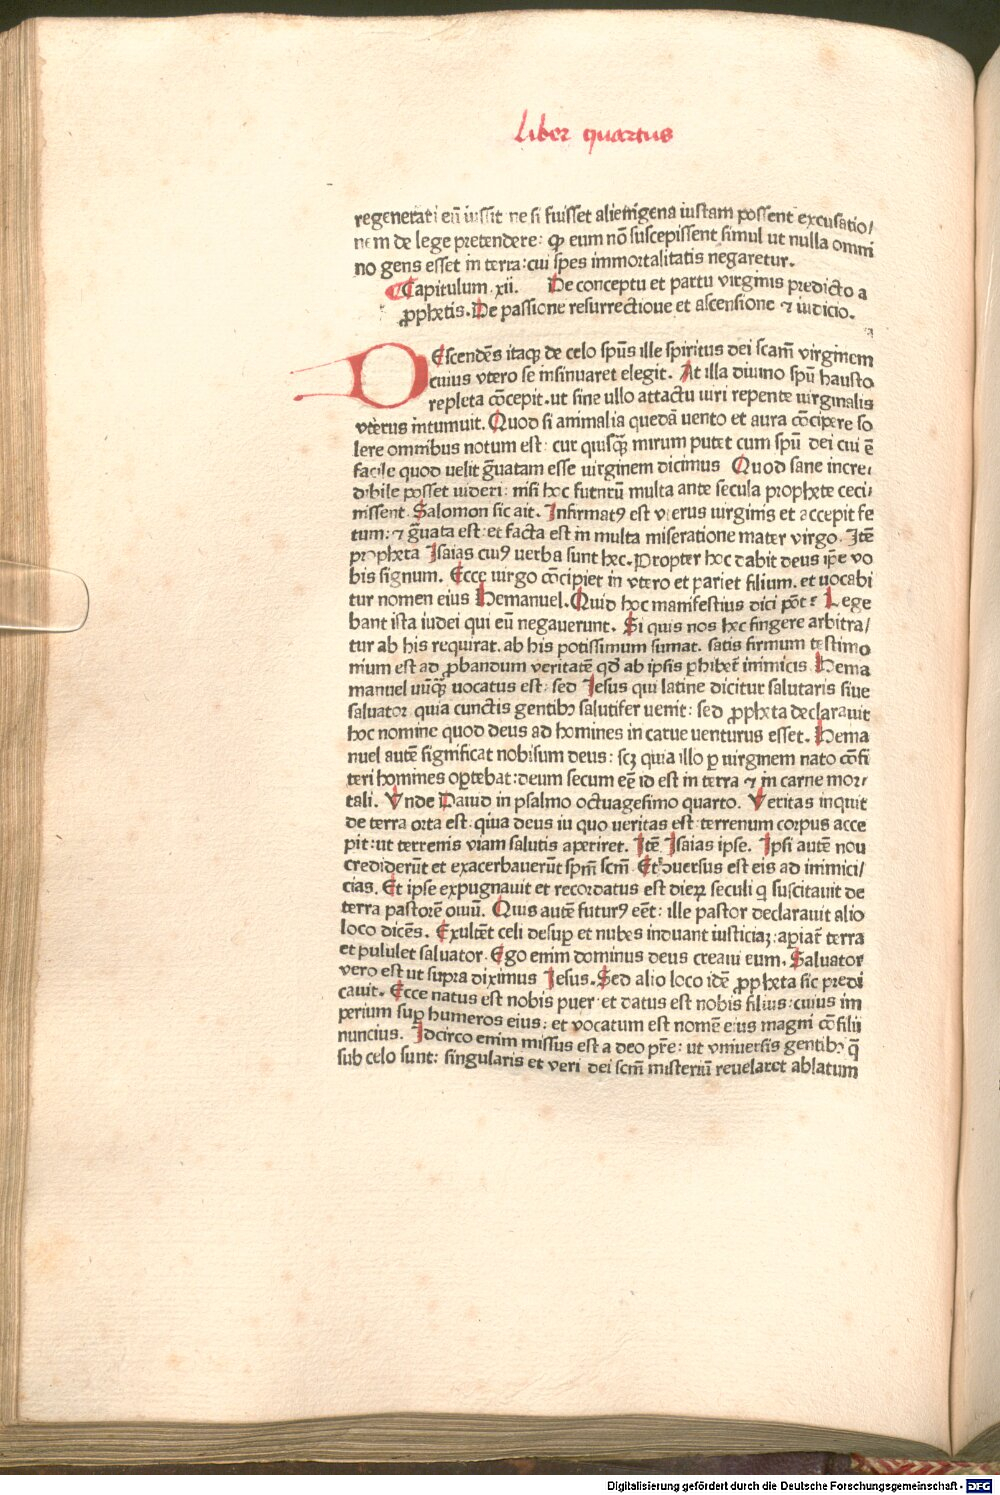 Liber quartus
regenerati eū iussit ne si fuisset alienigena iustam possent excusatio/
nem de lege pretendere: ꝙ eum nō suscepissent simul ut nulla omni
no gens esset in terra: cui spes immortalitatis negaretur.
Capitulum .xii. De conceptu et partu virginis predicto a
ꝓphetis. De passione resurrectioue et ascensione ⁊ iudicio.
DEscendēs itaqꝫ de celo spūs ille spiritus dei scam̄ virginem
cuius vtero se insinuaret elegit. At illa diuino spū hausto
repleta cōcepit. ut sine ullo attactu uiri repente uirginalis
vterus intumuit. Quod si animalia quedā uento et aura cōcipere so
lere omnibus notum est: cur quisqꝫ̄ mirum putet cum spū dei cui ē
facile quod uelit gūatam esse uirginem dicimus Quod sane incre/
dibile posset uideri: nisi hoc futurū multa ante secula prophete ceci/
nissent. Salomon sic ait. Infirmatꝰ est vterus uirginis et accepit fe
tum: ⁊ gūata est: et facta est in multa miseratione mater virgo. Itē
propheta Isaias cuiꝰ uerba sunt hec. Propter hoc dabit deus ip̄e vo
bis signum. Ecce uirgo cōcipiet in vtero et pariet filium. et uocabi
tur nomen eius Hemanuel. Quid hoc manifestius dici pōt: Lege
bant ista iudei qui eū negauerunt. Si quis nos hec fingere arbitra/
tur ab his requirat. ab his potissimum sumat. satis firmum testimo
nium est ad ꝓbandum veritatē qd̄ ab ipsis ꝑhibet̄ inimicis. Hema
manuel uūqꝫ̄ uocatus est: sed Iesus qui latine dicitur salutaris siue
saluator. quia cunctis gentibꝫ salutifer uenit: sed ꝓpheta declarauit
hoc nomine quod deus ad homines in carue venturus esset. Hema
nuel autē significat nobisum deus: scꝫ quia illo ꝑ uirginem nato cōfi
teri homines oꝑtebat: deum secum eē id est in terra ⁊ in carne mor/
tali. Vnde Dauid in psalmo octuagesimo quarto. Veritas inquit
de terra orta est. qiva deus iu quo ueritas est: terrenum corpus acce
pit: ut terrenis viam salutis aperiret. Itē Isaias ipse. Ipsi autē nou
crediderūt et exacerbauerūt spm̄ scm̄. Et ꝯuersus est eis ad inimici/
cias. Et ipse expugnauit et recordatus est dieꝝ seculi q suscitauit de
terra pastorē ouiū. Quis autē futurꝰ eēt: ille pastor declarauit alio
loco dicēs. Exultēt celi desuꝑ et nubes induant iusticiaꝫ: aꝑiat̄ terra
et pululet saluator. Ego enim dominus deus creaui eum. Saluator
vero est ut supra diximus Iesus. Sed alio loco idē ꝓpheta sic predi
cauit. Ecce natus est nobis puer: et datus est nobis filius: cuius im
perium suꝑ humeros eius: et vocatum est nomē eius magni cōsilii
nuncius. Idcirco enim missus est a deo pr̄e: ut vniuersis gentibꝫ q̄
sub celo sunt: singularis et veri dei scm̄ misteriū reuelaret ablatum
Digitalisierung gefördert durch die Deutsche Forschungsgemeinschaft - DFG